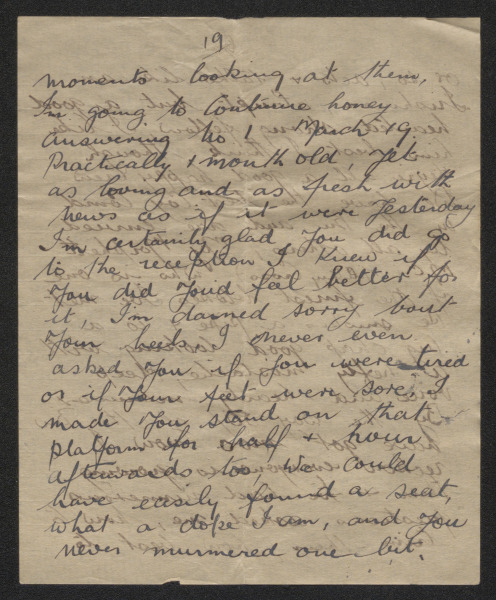 19
moments looking at them,
I'm going to continue honey
answering no 1 March 19.
Practically 1 month old, yet
as loving and as fresh with
news as if it were yesterday
I'm certainly glad you did go
to the reception I knew if
you did you'd feel better for
it, I'm darned sorry bout
your heels I never even
asked you if you were tired
or if your feet were sore, I
made you stand on that
platform for half + hour
afterwards too, we could
have easily found a seat,
what a dope I am, and you
never murmered one bit.